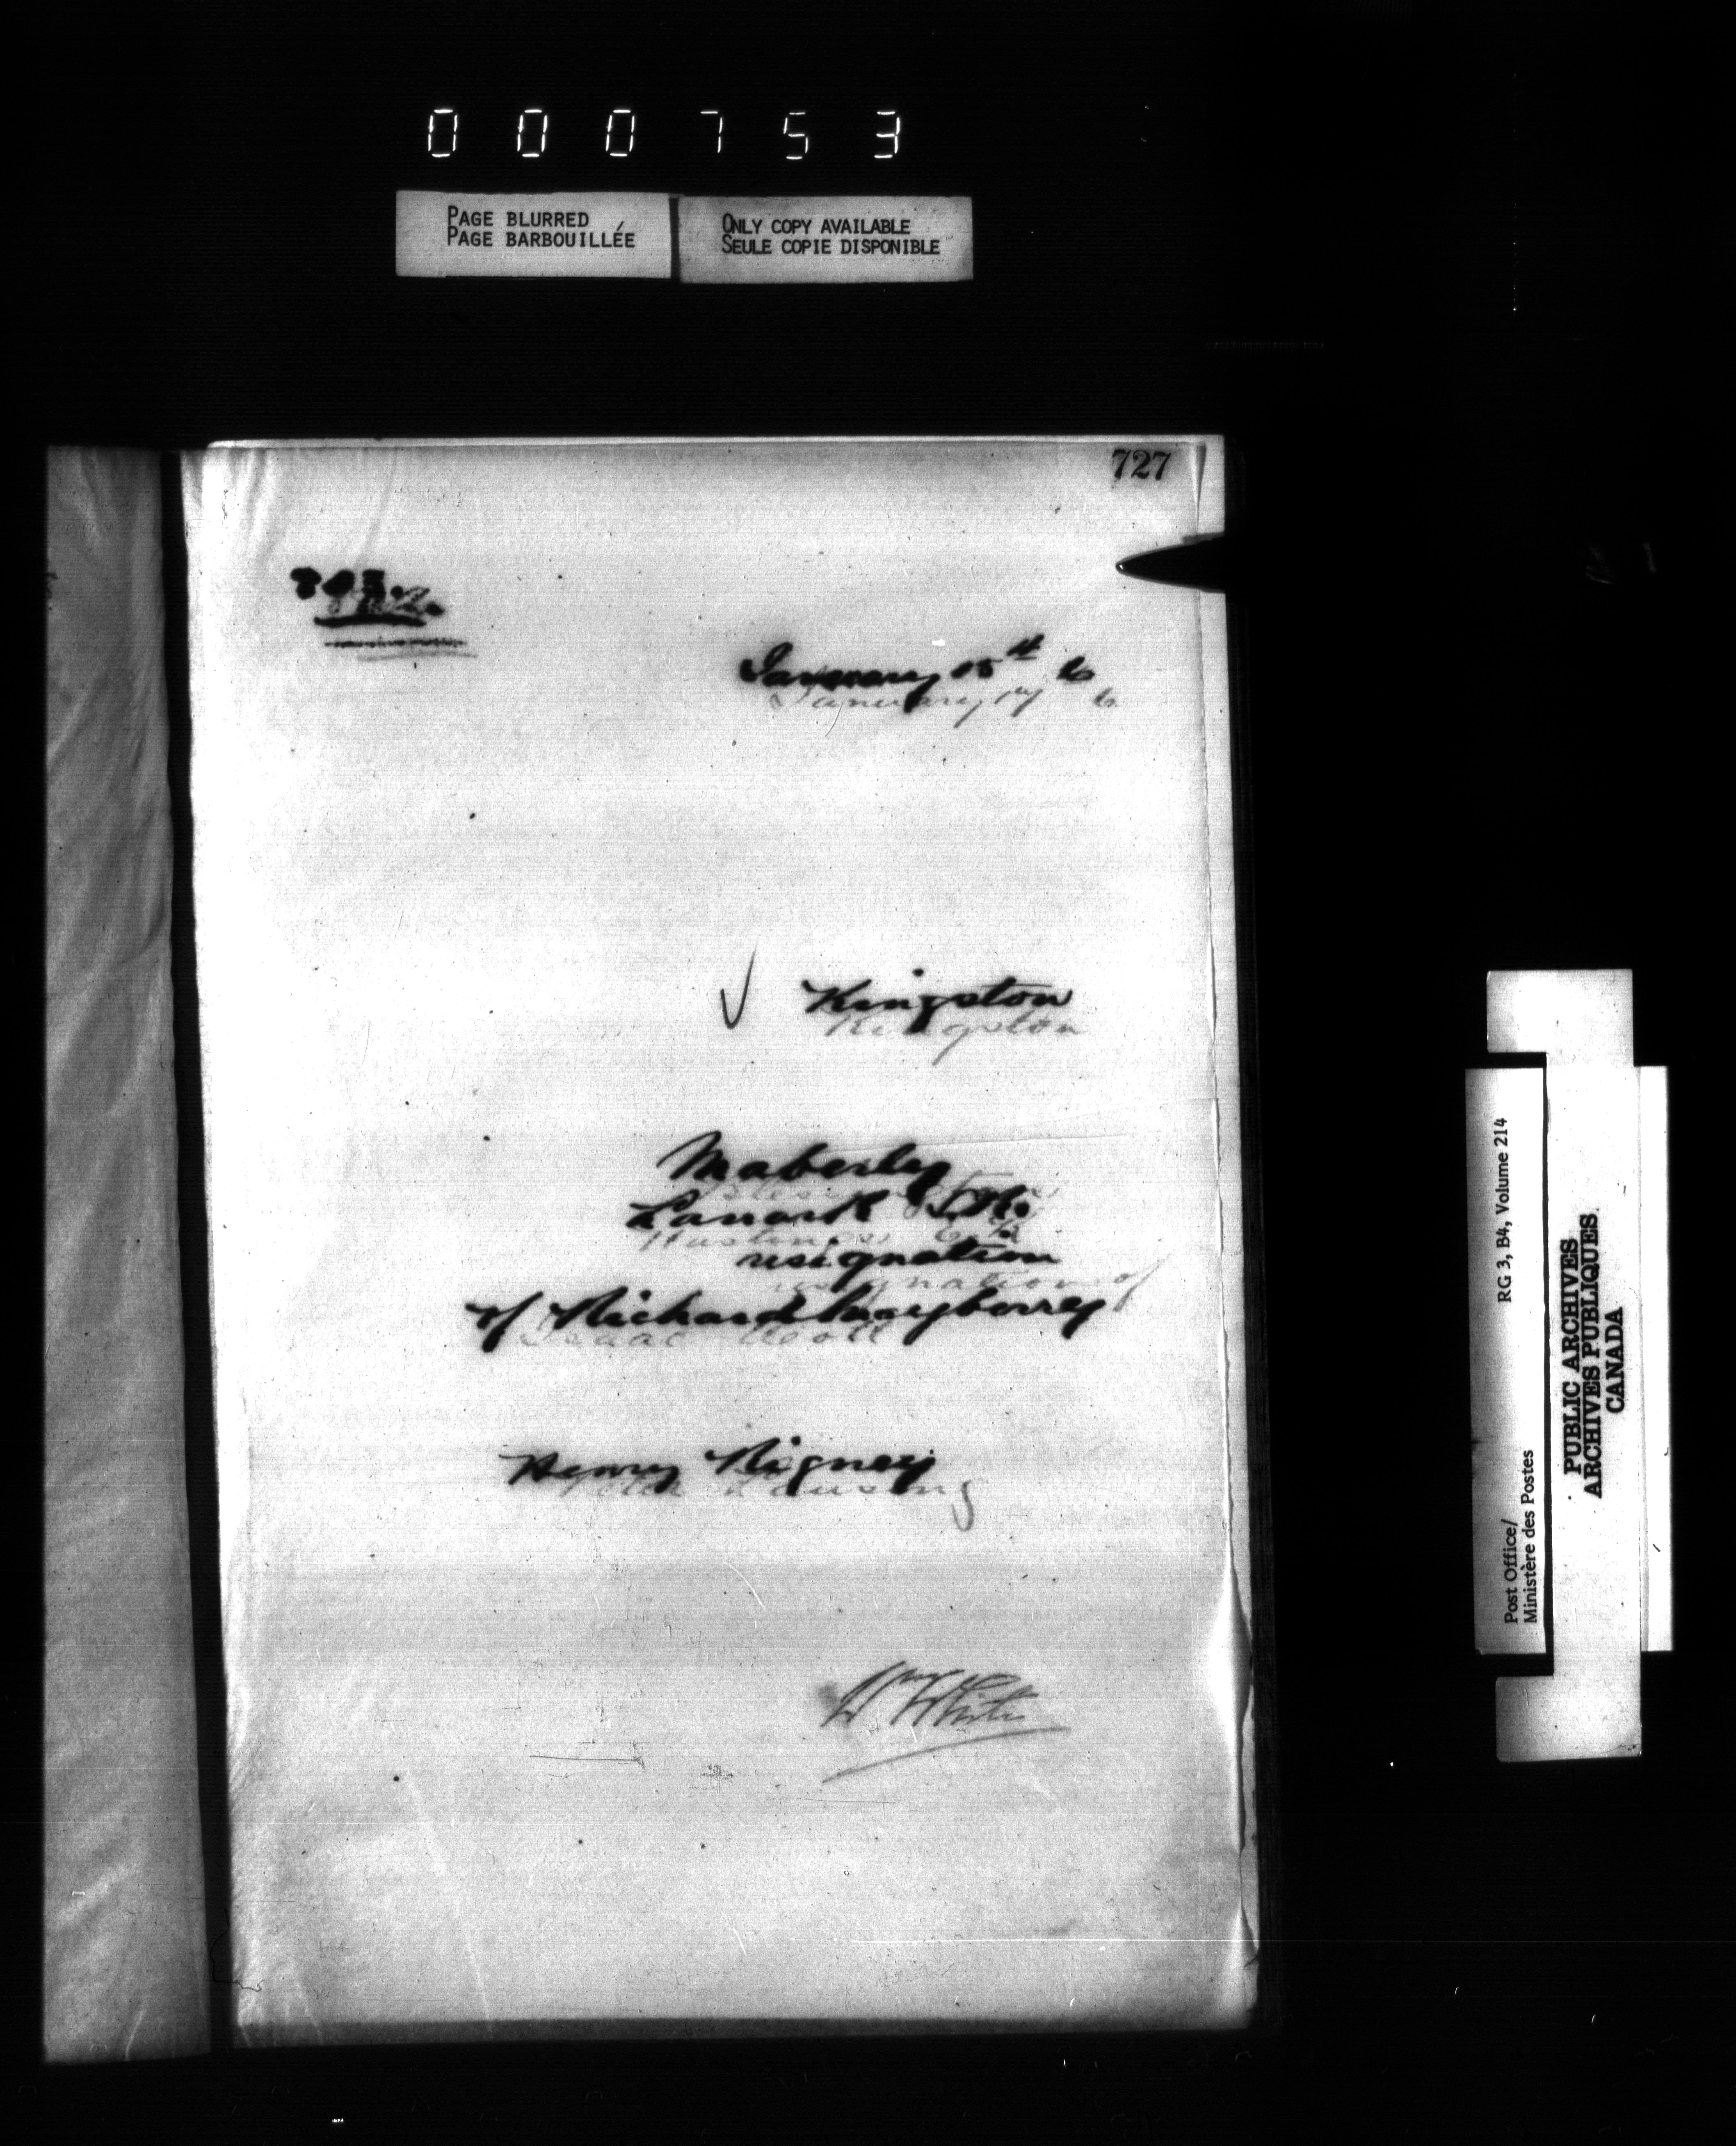 000753
PAGE BLURRED
PAGE BARBOUILLÉE
ONLY COPY AVAILABLE
SEULE COPIE DISPONIBLE
727
January 15th 6
January 6
Kingston
Kingston
Maberley
Lanark S.R.
Hastings
resignation
resignation of
of Richard Mayberry
Isaac
Henry Rigney
W White
RG 3, B4, Volume 214
Post Office/
Ministère des Postes
PUBLIC ARCHIVES
ARCHIVES PUBLIQUES
CANADA